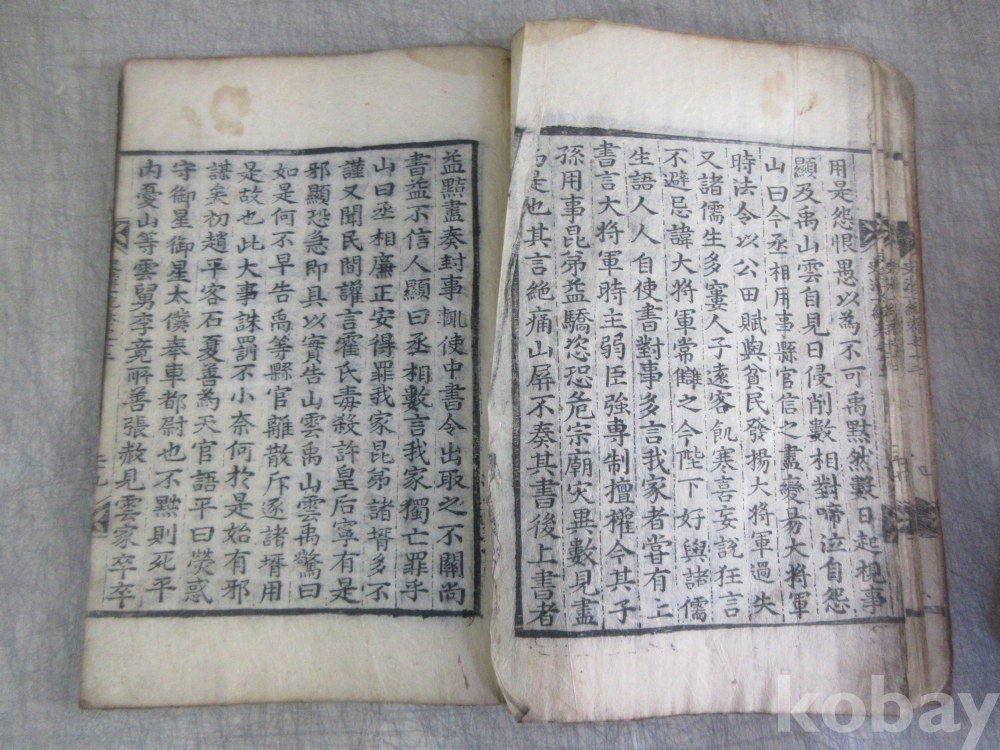 用是怨恨愚以為不可禹默然數日起視事
顯及禹山雲自見日侵削數相對啼泣自怨
山曰今丞相用事縣官信之盡變易大將軍
時法令以公田賦與貧民發揚大將軍過失
又諸儒生多窶人子遠客飢寒喜妄說狂言
不避忌諱大將軍常讎之今陛下好與諸儒
生語人人自使書對事多言我家者嘗有上
書言大將軍時主弱臣強專制擅權今其子
孫用事昆弟益驕恣恐危宗廟灾異數見盡
為是也其言絶痛山屏不奏其書後上書者
益黠盡奏封事輒使中書令出取之不關尚
書益不信人顯曰丞相數言我家獨亡罪乎
山曰丞相廉正安得罪我家昆弟諸壻多不
謹又聞民間讙言霍氏毒殺許皇后寧有是
邪顯恐急即具以實告山雲禹山雲禹驚曰
如是何不早告禹等縣官離散斥逐諸壻用
是故也此大事誅罰不小奈何於是始有邪
謀矣初趙平客石夏善為天官語平曰熒惑
守御星御星太僕奉車都尉也不黜則死平
內憂山等雲舅李竟所善張赦見雲家卒卒
kobay